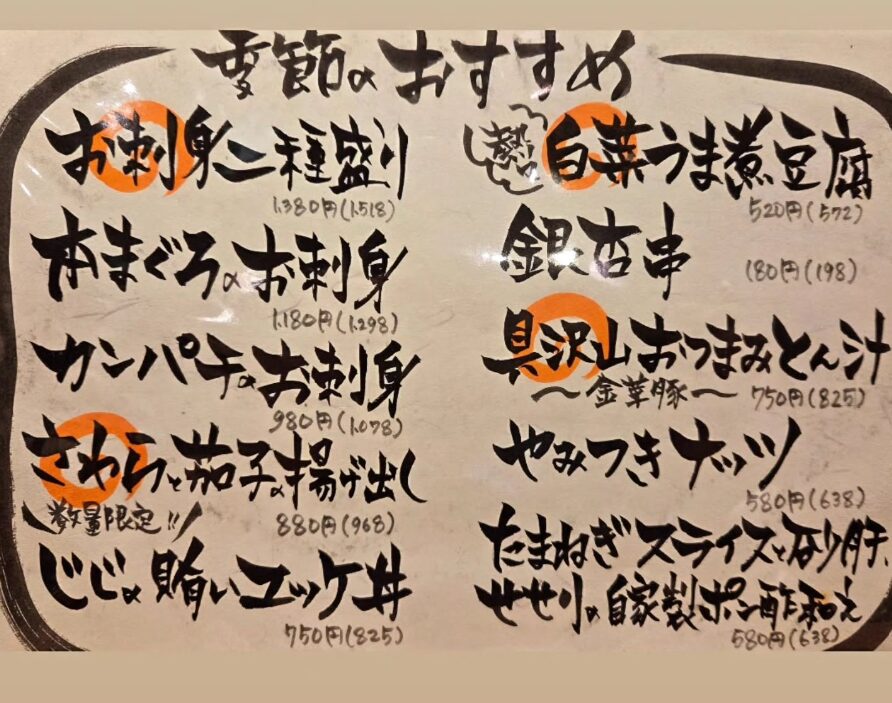 季節のおすすめ
お刺身二種盛り
1.380円(1.518)
本まぐろのお刺身
1.180円(1.298)
カンパチのお刺身
980円(1.078)
さわらと茄子の揚げ出し
数量限定!!
880円(968)
じじの賄いユッケ丼
750円(825)
熱々 白菜うま煮豆腐
520円(572)
銀杏串
180円(198)
具沢山おつまみとん汁
〜金華豚〜 750円(825)
やみつきナッツ
580円(638)
たまねぎスライスと砂肝、
せせりの自家製ポン酢和え
580円(638)